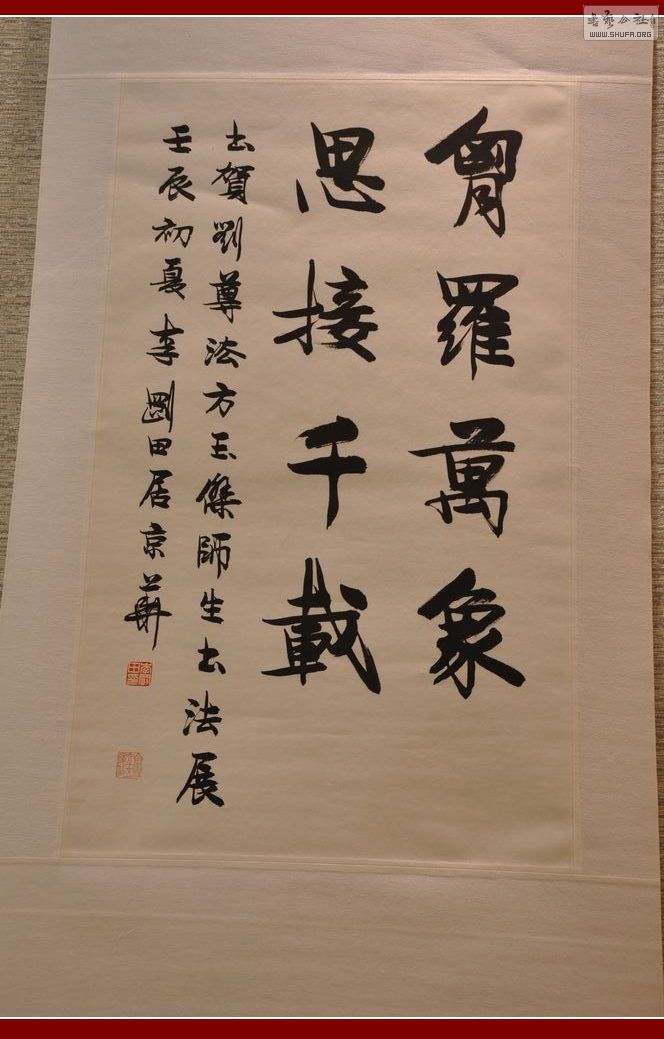 胷羅萬象
思接千載
书賀劉尊法方玉傑師生书法展
壬辰初夏李剛田居京華
书艺公社
WWW.SHUFA.ORG